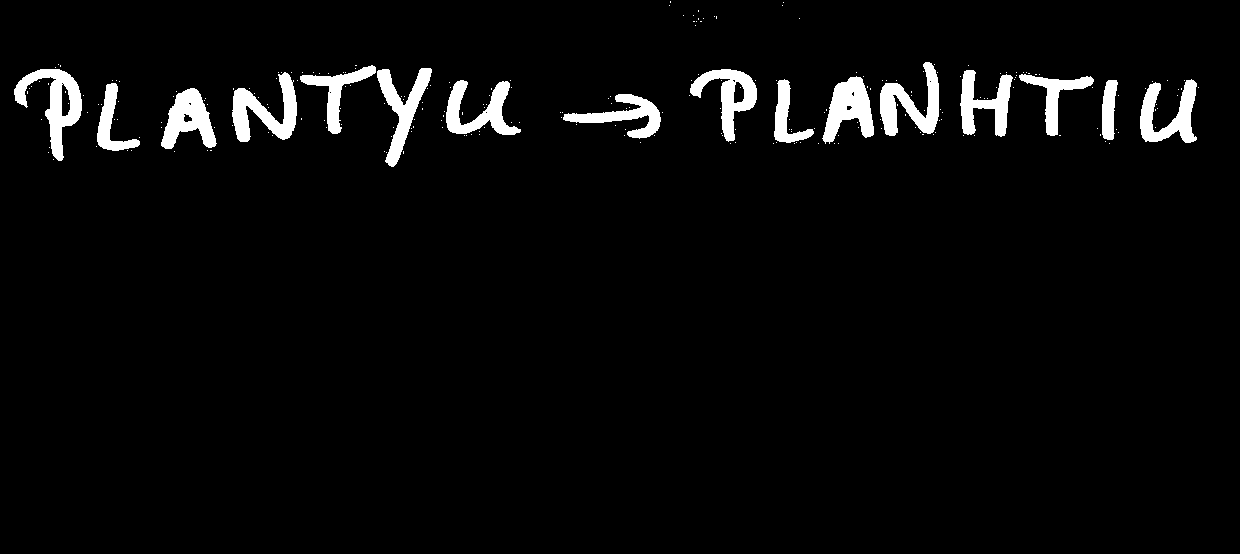 PLANTYU → PLANHTIU